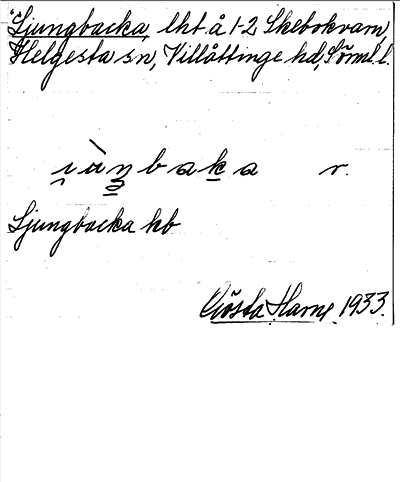 Ljungbacka, lht å 1-2 Skebokvarn,
Helgesta sn, Villåttinge hd, Sörml. l.
i̯ày̳baḵa r.
Ljungbacka hb
Gösta Harne 1933.